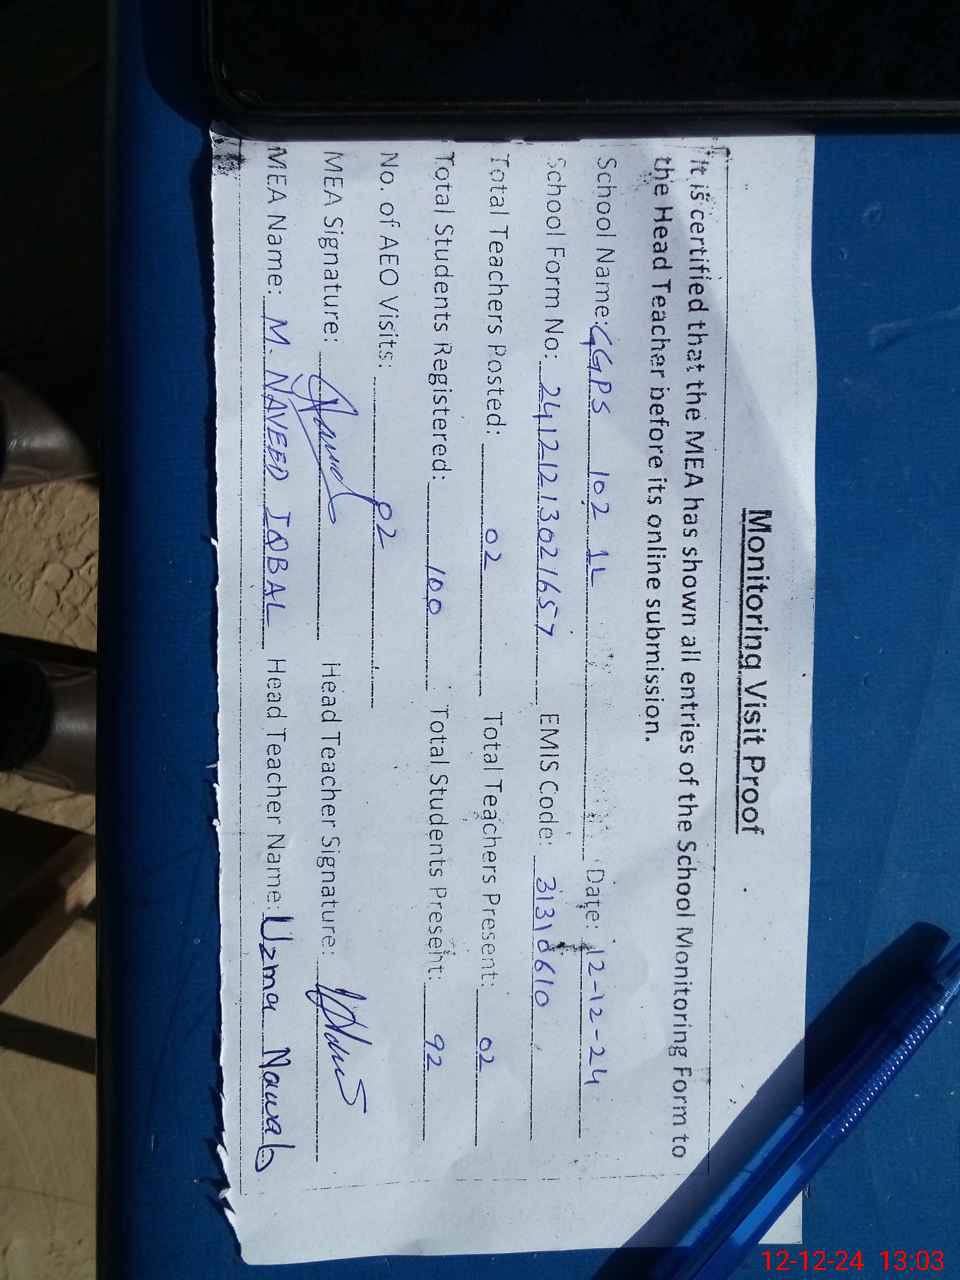 Monitoring Visit Proof
It is certified that the MEA has shown all entries of the School Monitoring Form to
the Head Teacher before its online submission.
School Name: GGPS 102 1L Date: 12-12-24
School Form No: 24121213021657 EMIS Code: 31310610
Total Teachers Posted: 02 Total Teachers Present: 02
Total Students Registered: 100 Total Students Present: 92
No. of AEO Visits: 02
MEA Signature: Head Teacher Signature:
MEA Name: M. NAVEED IQBAL Head Teacher Name: Uzma Nawab
12-12-24 13:03